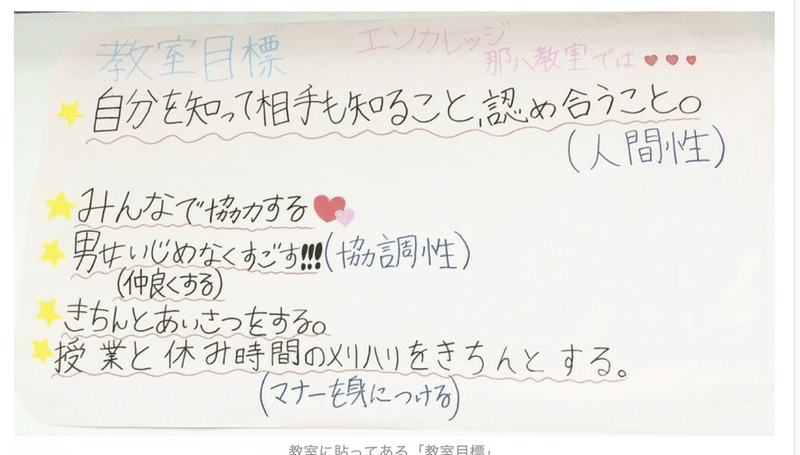 教室目標
エンカレッジ
那八教室では
自分を知って相手も知ること、認め合うこと。
(人間性)
みんなで協力する
男女いじめなくすごす!!!(協調性)
(仲良くする)
きちんとあいさつをする。
授業と休み時間のメリハリをきちんとする。
(マナーを身につける)
教室に貼ってある「教室目標」